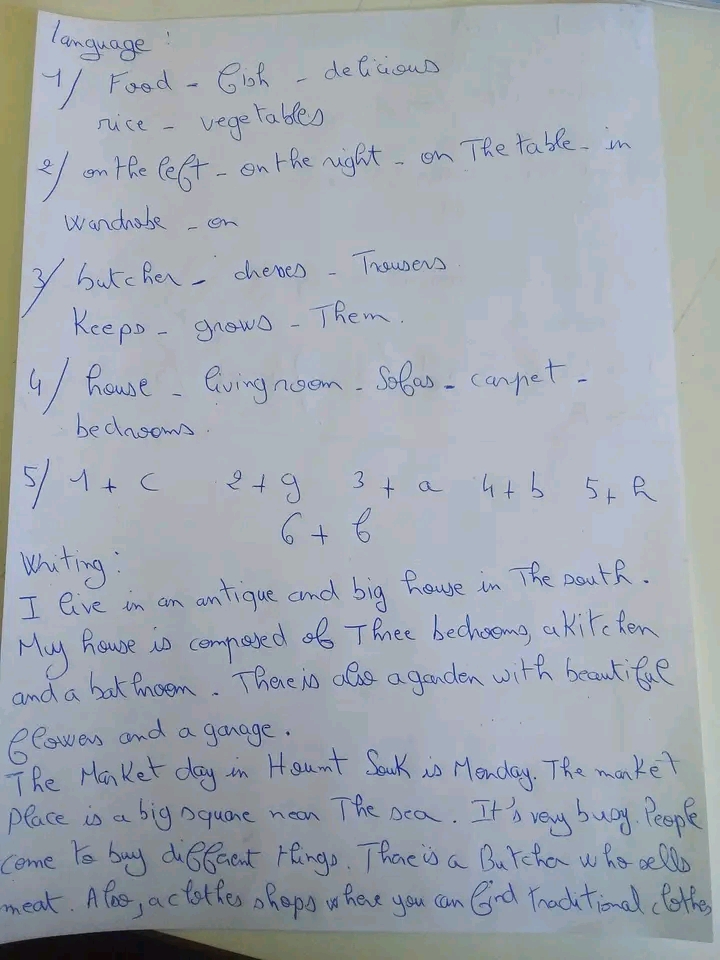 language :
1/ Food - fish - delicious
rice - vegetables
2/ on the left - on the right - on The table - in
wardrobe - on
3/ butcher - - Trousers
Keeps - grows - Them.
4/ house - living room - Sofas - carpet -
bedrooms.
5/ 1 + c 2 + g 3 + a 4 + b 5 + h
6 + f
Writing :
I live in an antique and big house in The south.
My house is composed of Three bedrooms, a Kitchen
and a bathroom. There is also a garden with beautiful
flowers and a garage.
The Market day in Houmt Souk is Monday. The market
place is a big square near The sea. It's very busy. People
come to buy different things. There is a Butcher who sells
meat. Also, a clothes shops where you can find traditional clothes